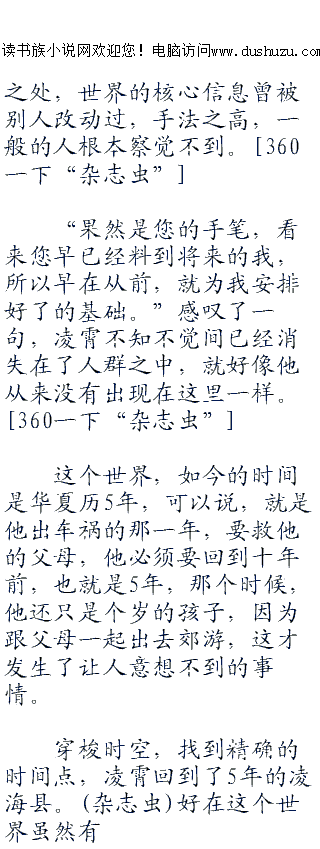 读书族小说网欢迎您！电脑访问www.dushuzu.com
之处，世界的核心信息曾被
别人改动过，手法之高，一
般的人根本察觉不到。[360
一下“杂志虫”]
“果然是您的手笔，看
来您早已经料到将来的我，
所以早在从前，就为我安排
好了的基础。”感叹了一
句，凌霄不知不觉间已经消
失在了人群之中，就好像他
从来没有出现在这里一样。
[360一下“杂志虫”]
这个世界，如今的时间
是华夏历5年，可以说，就是
他出车祸的那一年，要救他
的父母，他必须要回到十年
前，也就是5年，那个时候，
他还只是个岁的孩子，因为
跟父母一起出去郊游，这才
发生了让人意想不到的事
情。
穿梭时空，找到精确的
时间点，凌霄回到了5年的凌
海县。(杂志虫)好在这个世
界虽然有